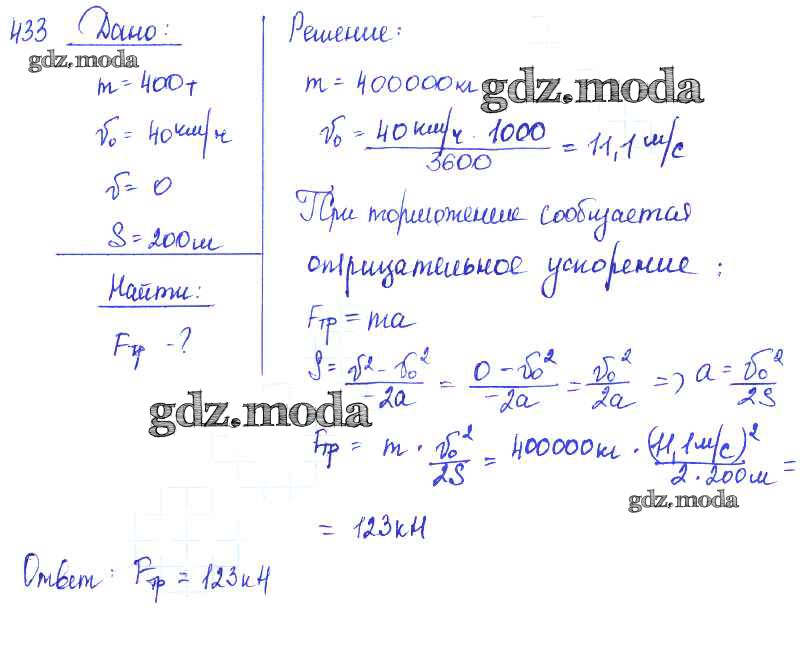 433 Дано:
gdz.moda
m = 400т
v₀ = 40км/ч
v = 0
S = 200м
Найти:
Fтр - ?
Решение:
m = 400000кг gdz.moda
v₀ = 40км/ч · 1000 / 3600 = 11,1м/с
При торможение сообщается
отрицательное ускорение:
Fтр = ma
S = v² - v₀² / -2a = 0 - v₀² / -2a = v₀² / 2a => a = v₀² / 2S
gdz.moda
Fтр = m · v₀² / 2S = 400000кг · (11,1м/с)² / 2 · 200м =
gdz.moda
= 123кН
Ответ: Fтр = 123кН